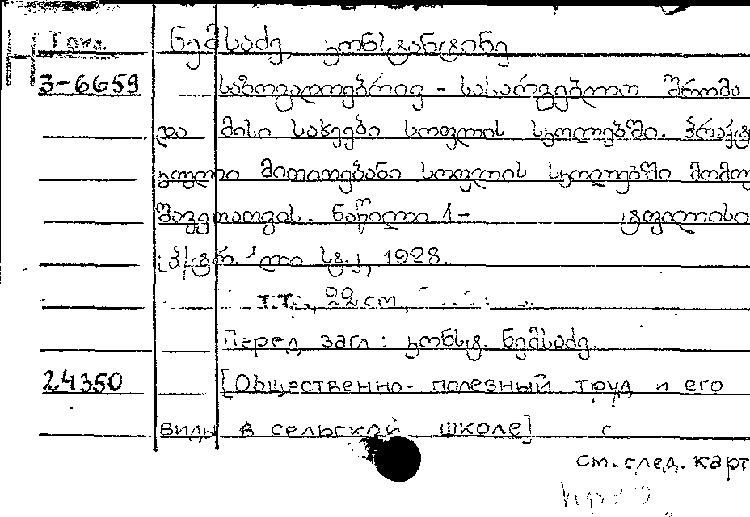 Груз. ნემსაძე, კონსტანტინე
3-6659 საზოგადოებრივ - სასარგებლო შრომა
და მისი სახეები სოფლის სკოლებში. პრაქტ
იკული მითითებანი სოფლის სკოლებში მომუ
შავეთათვის. ნაწილი 1- ტფილისი
სტ., 1928.
т.т., 22 cm,
Перед загл: კონსტ. ნემსაძე.
24350 [Общественно- полезный труд и его
виды в сельской школе]
см. след. карт